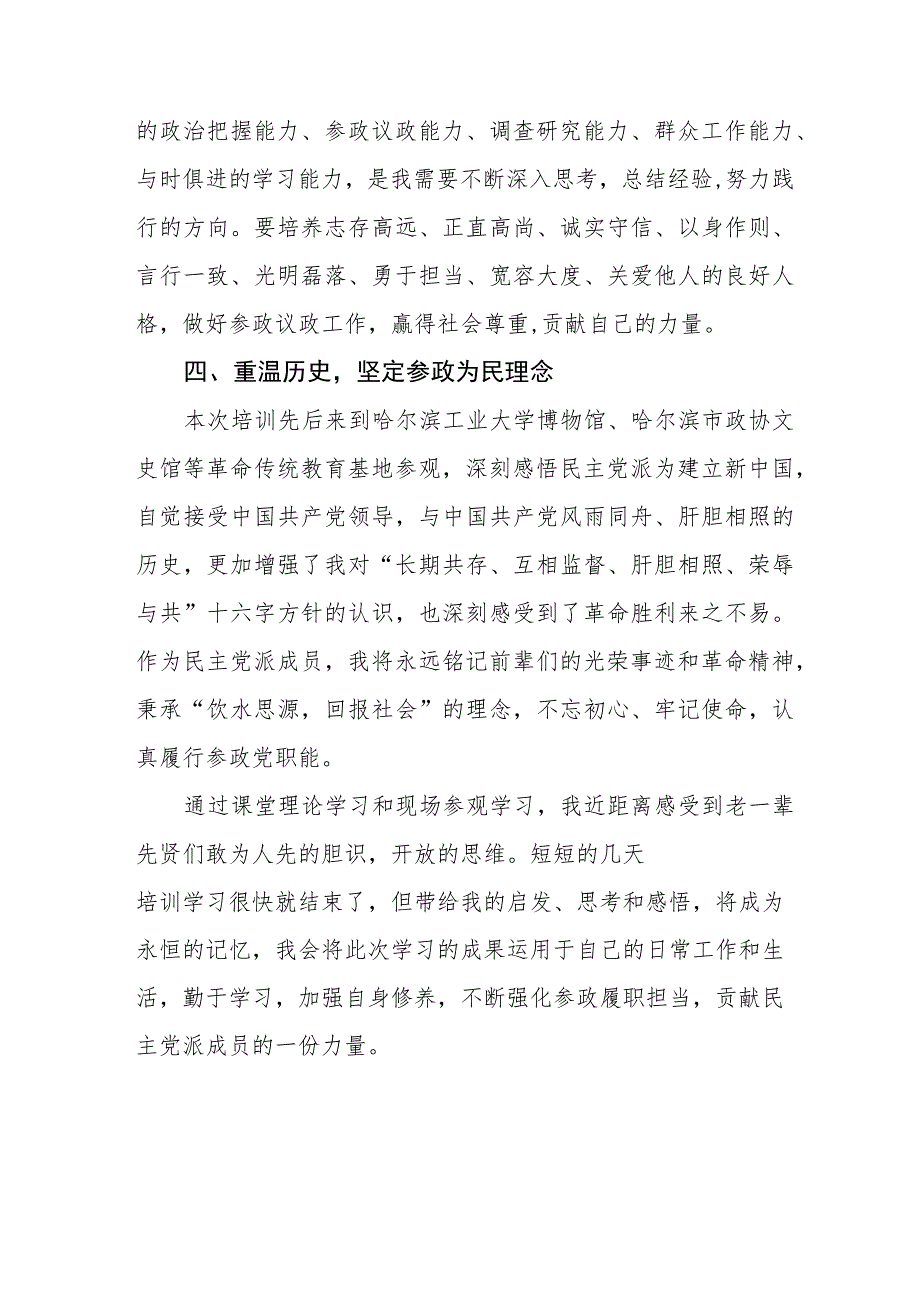 的政治把握能力、参政议政能力、调查研究能力、群众工作能力、
与时俱进的学习能力，是我需要不断深入思考，总结经验,努力践
行的方向。要培养志存高远、正直高尚、诚实守信、以身作则、
言行一致、光明磊落、勇于担当、宽容大度、关爱他人的良好人
格，做好参政议政工作，赢得社会尊重,贡献自己的力量。
四、重温历史，坚定参政为民理念
本次培训先后来到哈尔滨工业大学博物馆、哈尔滨市政协文
史馆等革命传统教育基地参观，深刻感悟民主党派为建立新中国，
自觉接受中国共产党领导，与中国共产党风雨同舟、肝胆相照的
历史，更加增强了我对“长期共存、互相监督、肝胆相照、荣辱
与共”十六字方针的认识，也深刻感受到了革命胜利来之不易。
作为民主党派成员，我将永远铭记前辈们的光荣事迹和革命精神，
秉承“饮水思源，回报社会”的理念，不忘初心、牢记使命，认
真履行参政党职能。
通过课堂理论学习和现场参观学习，我近距离感受到老一辈
先贤们敢为人先的胆识，开放的思维。短短的几天
培训学习很快就结束了，但带给我的启发、思考和感悟，将成为
永恒的记忆，我会将此次学习的成果运用于自己的日常工作和生
活，勤于学习，加强自身修养，不断强化参政履职担当，贡献民
主党派成员的一份力量。